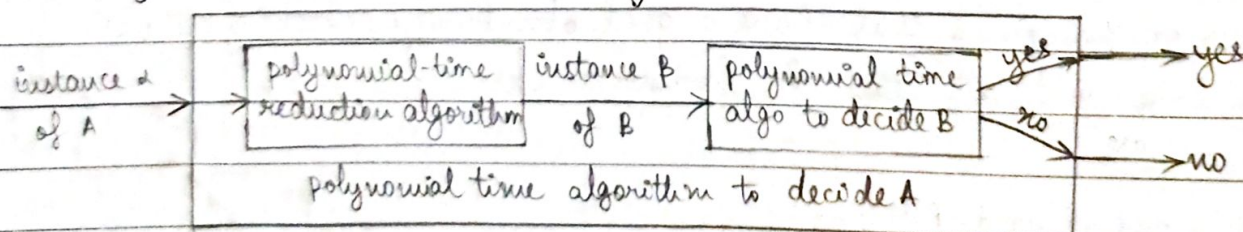 instance α
of A
polynomial-time
reduction algorithm
instance β
of B
polynomial time
algo to decide B
yes
no
yes
no
polynomial time algorithm to decide A